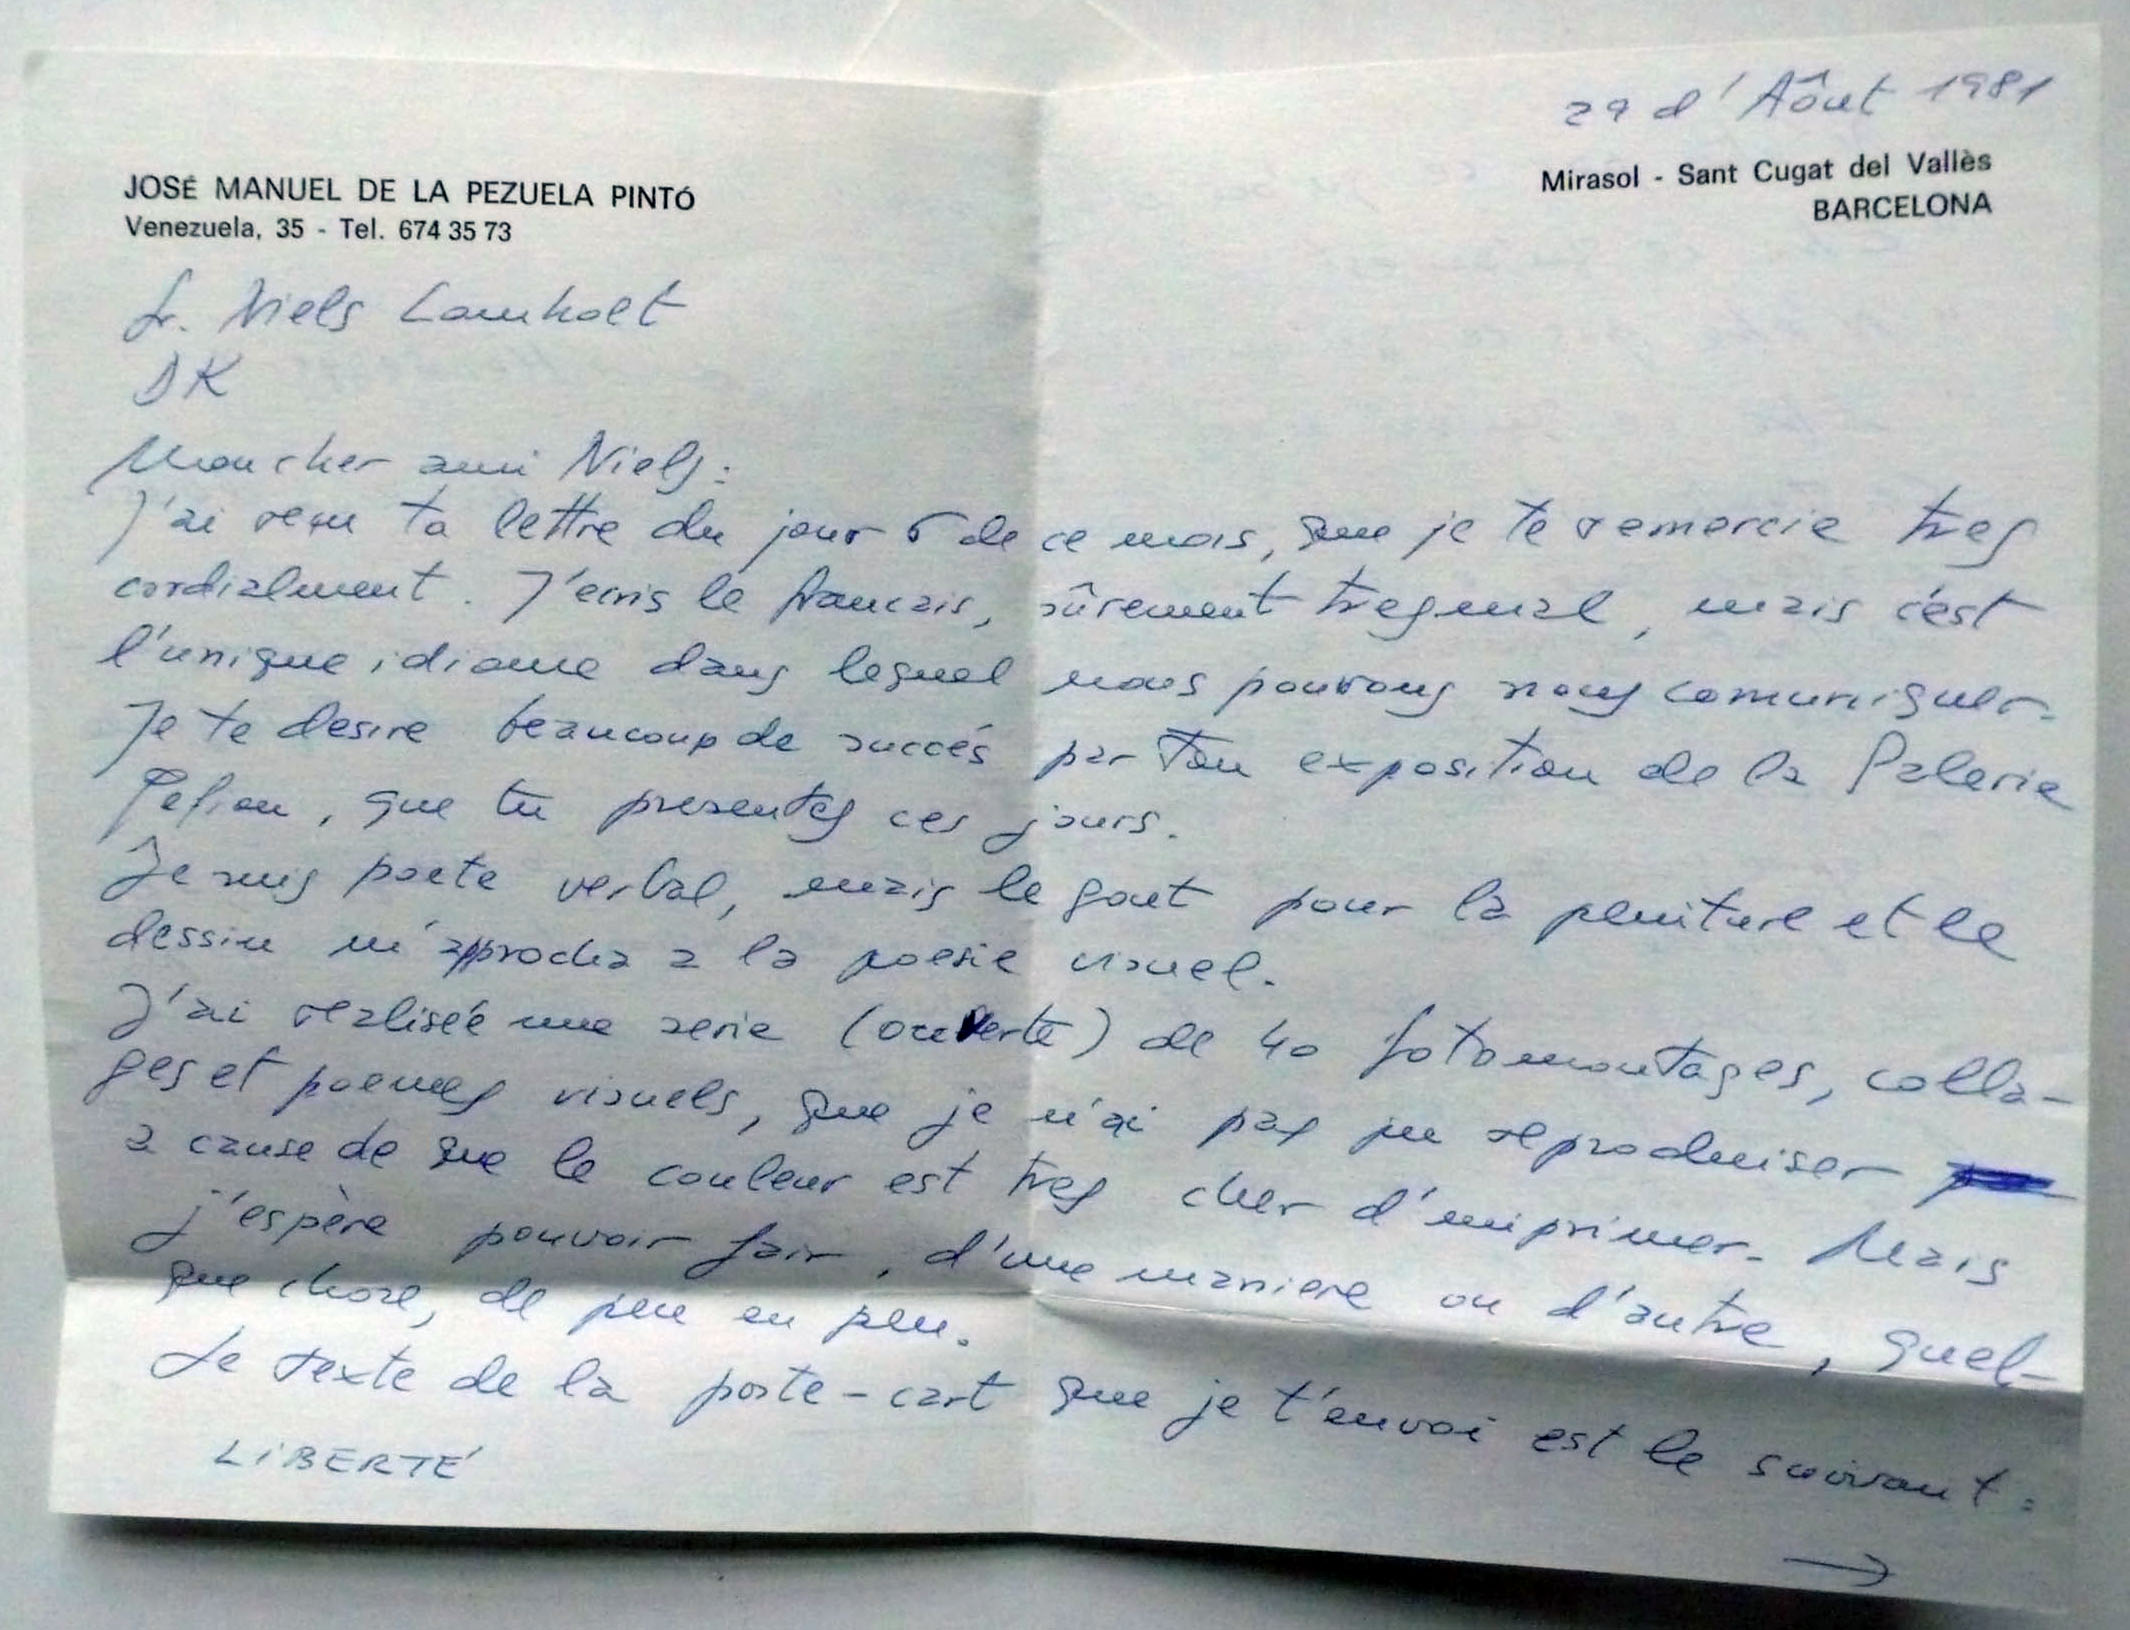 29 d'Aôut 1981
JOSÉ MANUEL DE LA PEZUELA PINTÓ
Venezuela, 35 - Tel. 674 35 73
Mirasol - Sant Cugat del Vallès
BARCELONA
Sr. Niels Lomholt
DK
Mon cher ami Niels:
J'ai reçu ta lettre du jour 6 de ce mois, que je te remercie tres
cordialment. J'ecris le francais, sûrement tres mal, mais c'est
l'unique idiome dans lequel nous pouvons nous comuniquer.
Je te desire beaucoup de succés par ton exposition de la Galerie
que tu presentes ces jours.
Je suis poete verbal, mais le gout pour la peniture et le
dessin m'approcha a la poesie visuel.
J'ai realiseé une serie (ouverte) de 40 fotomontages, colla-
ges et poemes visuels, que je n'ai pas pu reproduiser
a cause de que le couleur est tres cher d'imprimer. Mais
j'espère pouvoir fair, d'une maniere ou d'autre, quel-
que chose, de peu en peu.
Le texte de la poste-cart que je t'envoi est le suivant:
LIBERTÉ
→